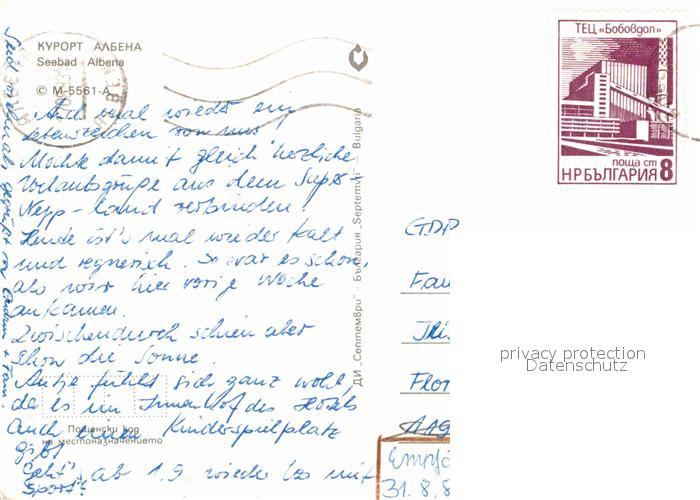 КУРОРТ АЛБЕНА
Seebad Albena
© M-5561-A
Auch mal wieder ein
Lebenszeichen von uns!
Möchte damit gleich herzliche
Urlaubsgrüße aus dem Super-
Nepp-Land verbinden!
Heute ist's mal wieder kalt
und regnerisch. So war es schon,
als wir hier vorige Woche
ankamen.
Zwischendurch schien aber
schon die Sonne.
Antje fühlt sich ganz wohl,
da es im Innenhof des Hotels
auch einen Kinderspielplatz
gibt
Geht's ab 1.9. wieder los mit
Sport?
Seid nochmals gegrüßt von + Fam.
Пощенски код
на местоназначението
ДИ „Септември" България „Septemvri" Bulgaria
ТЕЦ „Бобовдол"
поща ст
НРБЪЛГАРИЯ 8
GDR
Fau
Flor
privacy protection
Datenschutz
Empfä
31.8.8